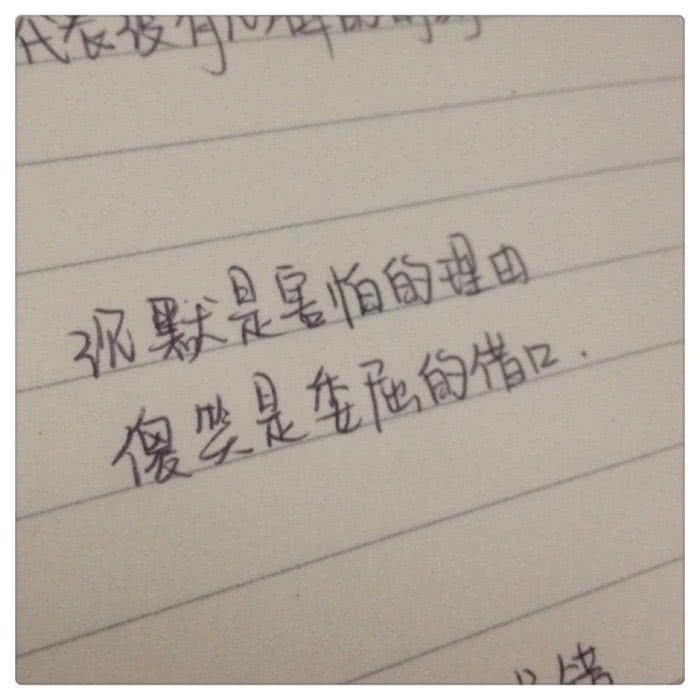 代表没有
沉默是害怕的理由
傻笑是委屈的借口.
错